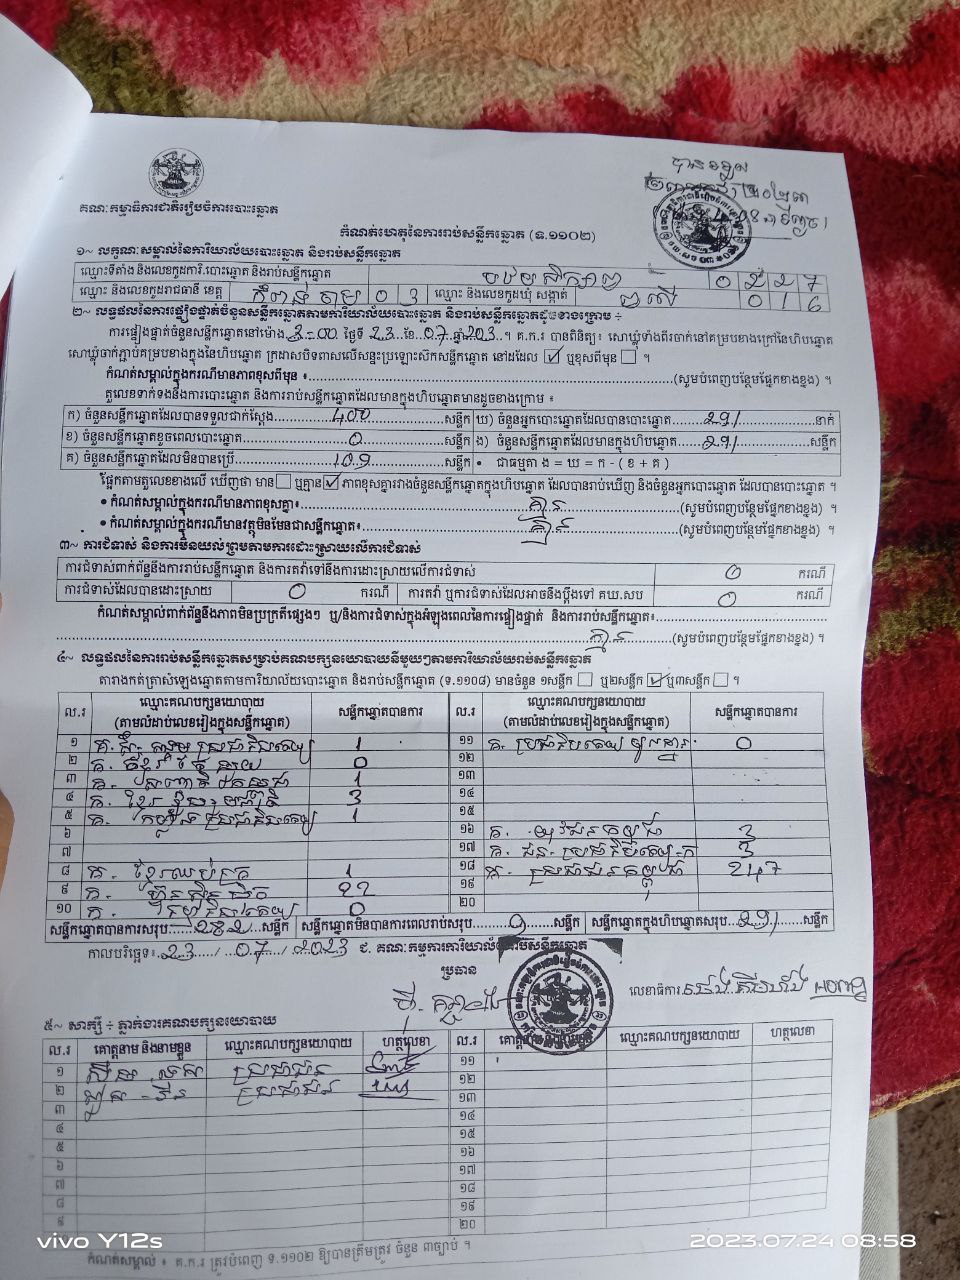 គណៈកម្មាធិការជាតិរៀបចំការបោះឆ្នោត
កំណត់ហេតុនៃការរាប់សន្លឹកឆ្នោត (ទ.១១០២)
១~ លក្ខណៈសម្គាល់នៃការិយាល័យបោះឆ្នោត និងរាប់សន្លឹកឆ្នោត
ឈ្មោះទីតាំង និងលេខកូដការិ.បោះឆ្នោត និងរាប់សន្លឹកឆ្នោត 0 2 2 7
ឈ្មោះ និងលេខកូដរាជធានី ខេត្ត កំពង់ចាម 0 3 ឈ្មោះ និងលេខកូដឃុំ សង្កាត់ 0 1 6
២~ លទ្ធផលនៃការផ្ទៀងផ្ទាត់ចំនួនសន្លឹកឆ្នោតតាមការិយាល័យបោះឆ្នោត និងរាប់សន្លឹកឆ្នោតដូចខាងក្រោម ÷
ការផ្ទៀងផ្ទាត់ចំនួនសន្លឹកឆ្នោតនៅម៉ោង 3-00 ថ្ងៃទី 23 ខែ 07 ឆ្នាំ 203 ។ គ.ក.រ បានពិនិត្យ៖ សោឃ្លុំទាំងពីរចាក់នៅគម្របខាងក្រៅនៃហិបឆ្នោត
សោឃ្លុំចាក់ភ្ជាប់គម្របខាងក្នុងនៃហិបឆ្នោត ក្រដាសបិទពាសលើសន្ទះប្រឡោះស៊កសន្លឹកឆ្នោត នៅដដែល ☑ ឬខុសពីមុន ☐ ។
កំណត់សម្គាល់ក្នុងករណីមានភាពខុសពីមុន ៖ (សូមបំពេញបន្ថែមផ្នែកខាងខ្នង) ។
តួលេខទាក់ទងនឹងការបោះឆ្នោត និងការរាប់សន្លឹកឆ្នោតដែលមានក្នុងហិបឆ្នោតមានដូចខាងក្រោម ៖
ក) ចំនួនសន្លឹកឆ្នោតដែលបានទទួលជាក់ស្តែង 400 សន្លឹក ឃ) ចំនួនអ្នកបោះឆ្នោតដែលបានបោះឆ្នោត 291 នាក់
ខ) ចំនួនសន្លឹកឆ្នោតខូចពេលបោះឆ្នោត 0 សន្លឹក ង) ចំនួនសន្លឹកឆ្នោតដែលមានក្នុងហិបឆ្នោត 291 សន្លឹក
គ) ចំនួនសន្លឹកឆ្នោតដែលមិនបានប្រើ 109 សន្លឹក • ជាធម្មតា ង = ឃ = ក - ( ខ + គ )
ផ្អែកតាមតួលេខខាងលើ ឃើញថា មាន ☐ ឬគ្មាន ☑ ភាពខុសគ្នារវាងចំនួនសន្លឹកឆ្នោតក្នុងហិបឆ្នោត ដែលបានរាប់ឃើញ និងចំនួនអ្នកបោះឆ្នោត ដែលបានបោះឆ្នោត ។
• កំណត់សម្គាល់ក្នុងករណីមានភាពខុសគ្នា៖ គ្មាន (សូមបំពេញបន្ថែមផ្នែកខាងខ្នង) ។
• កំណត់សម្គាល់ក្នុងករណីមានវត្ថុមិនមែនជាសន្លឹកឆ្នោត៖ គ្មាន (សូមបំពេញបន្ថែមផ្នែកខាងខ្នង) ។
៣~ ការជំទាស់ និងការមិនយល់ព្រមតាមការដោះស្រាយលើការជំទាស់
ការជំទាស់ពាក់ព័ន្ធនឹងការរាប់សន្លឹកឆ្នោត និងការតវ៉ាទៅនឹងការដោះស្រាយលើការជំទាស់ 0 ករណី
ការជំទាស់ដែលបានដោះស្រាយ 0 ករណី ការតវ៉ា ឬការជំទាស់ដែលអាចនឹងប្តឹងទៅ គឃ.សប 0 ករណី
កំណត់សម្គាល់ពាក់ព័ន្ធនឹងភាពមិនប្រក្រតីផ្សេងៗ ឬ/និងការជំទាស់ក្នុងអំឡុងពេលនៃការផ្ទៀងផ្ទាត់ និងការរាប់សន្លឹកឆ្នោត៖
គ្មាន (សូមបំពេញបន្ថែមផ្នែកខាងខ្នង) ។
៤~ លទ្ធផលនៃការរាប់សន្លឹកឆ្នោតសម្រាប់គណបក្សនយោបាយនីមួយៗតាមការិយាល័យរាប់សន្លឹកឆ្នោត
តារាងកត់ត្រាសំឡេងឆ្នោតតាមការិយាល័យបោះឆ្នោត និងរាប់សន្លឹកឆ្នោត (ទ.១១០៨) មានចំនួន ១សន្លឹក ☐ ឬ២សន្លឹក ☑ ឬ៣សន្លឹក ☐ ។
ល.រ ឈ្មោះគណបក្សនយោបាយ (តាមលំដាប់លេខរៀងក្នុងសន្លឹកឆ្នោត) សន្លឹកឆ្នោតបានការ ល.រ ឈ្មោះគណបក្សនយោបាយ (តាមលំដាប់លេខរៀងក្នុងសន្លឹកឆ្នោត) សន្លឹកឆ្នោតបានការ
១ គ. 1 ១១ គ. 0
២ គ. 0 ១២
៣ គ. 1 ១៣
៤ គ. ខ្មែររួបរួមជាតិ 3 ១៤
៥ គ. កម្លាំងប្រជាធិបតេយ្យ 1 ១៥
៦ ១៦ គ. យុវជនកម្ពុជា 3
៧ ១៧ គ. 3
៨ គ. ខ្មែរឈប់ក្រ 1 ១៨ គ. ប្រជាជនកម្ពុជា 247
៩ គ. ហ៊្វុនស៊ិនប៉ិច 22 ១៩
១០ គ. 0 ២០
សន្លឹកឆ្នោតបានការសរុប 282 សន្លឹក សន្លឹកឆ្នោតមិនបានការពេលរាប់សរុប 9 សន្លឹក សន្លឹកឆ្នោតក្នុងហិបឆ្នោតសរុប 291 សន្លឹក
កាលបរិច្ឆេទ៖ 23 / 07 / 2023 ជ. គណៈកម្មការការិយាល័យរាប់សន្លឹកឆ្នោត
ប្រធាន
លេខាធិការ
៥~ សាក្សី ÷ ភ្នាក់ងារគណបក្សនយោបាយ
ល.រ គោត្តនាម និងនាមខ្លួន ឈ្មោះគណបក្សនយោបាយ ហត្ថលេខា ល.រ គោត្តនាម និងនាមខ្លួន ឈ្មោះគណបក្សនយោបាយ ហត្ថលេខា
១ ប្រជាជន ១១
២ ប្រជាជន ១២
៣ ១៣
៤ ១៤
៥ ១៥
៦ ១៦
៧ ១៧
៨ ១៨
៩ ១៩
២០
កំណត់សម្គាល់ ៖ គ.ក.រ ត្រូវបំពេញ ទ.១១០២ ឱ្យបានត្រឹមត្រូវ ចំនួន ៣ច្បាប់ ។
vivo Y12s
2023.07.24 08:58